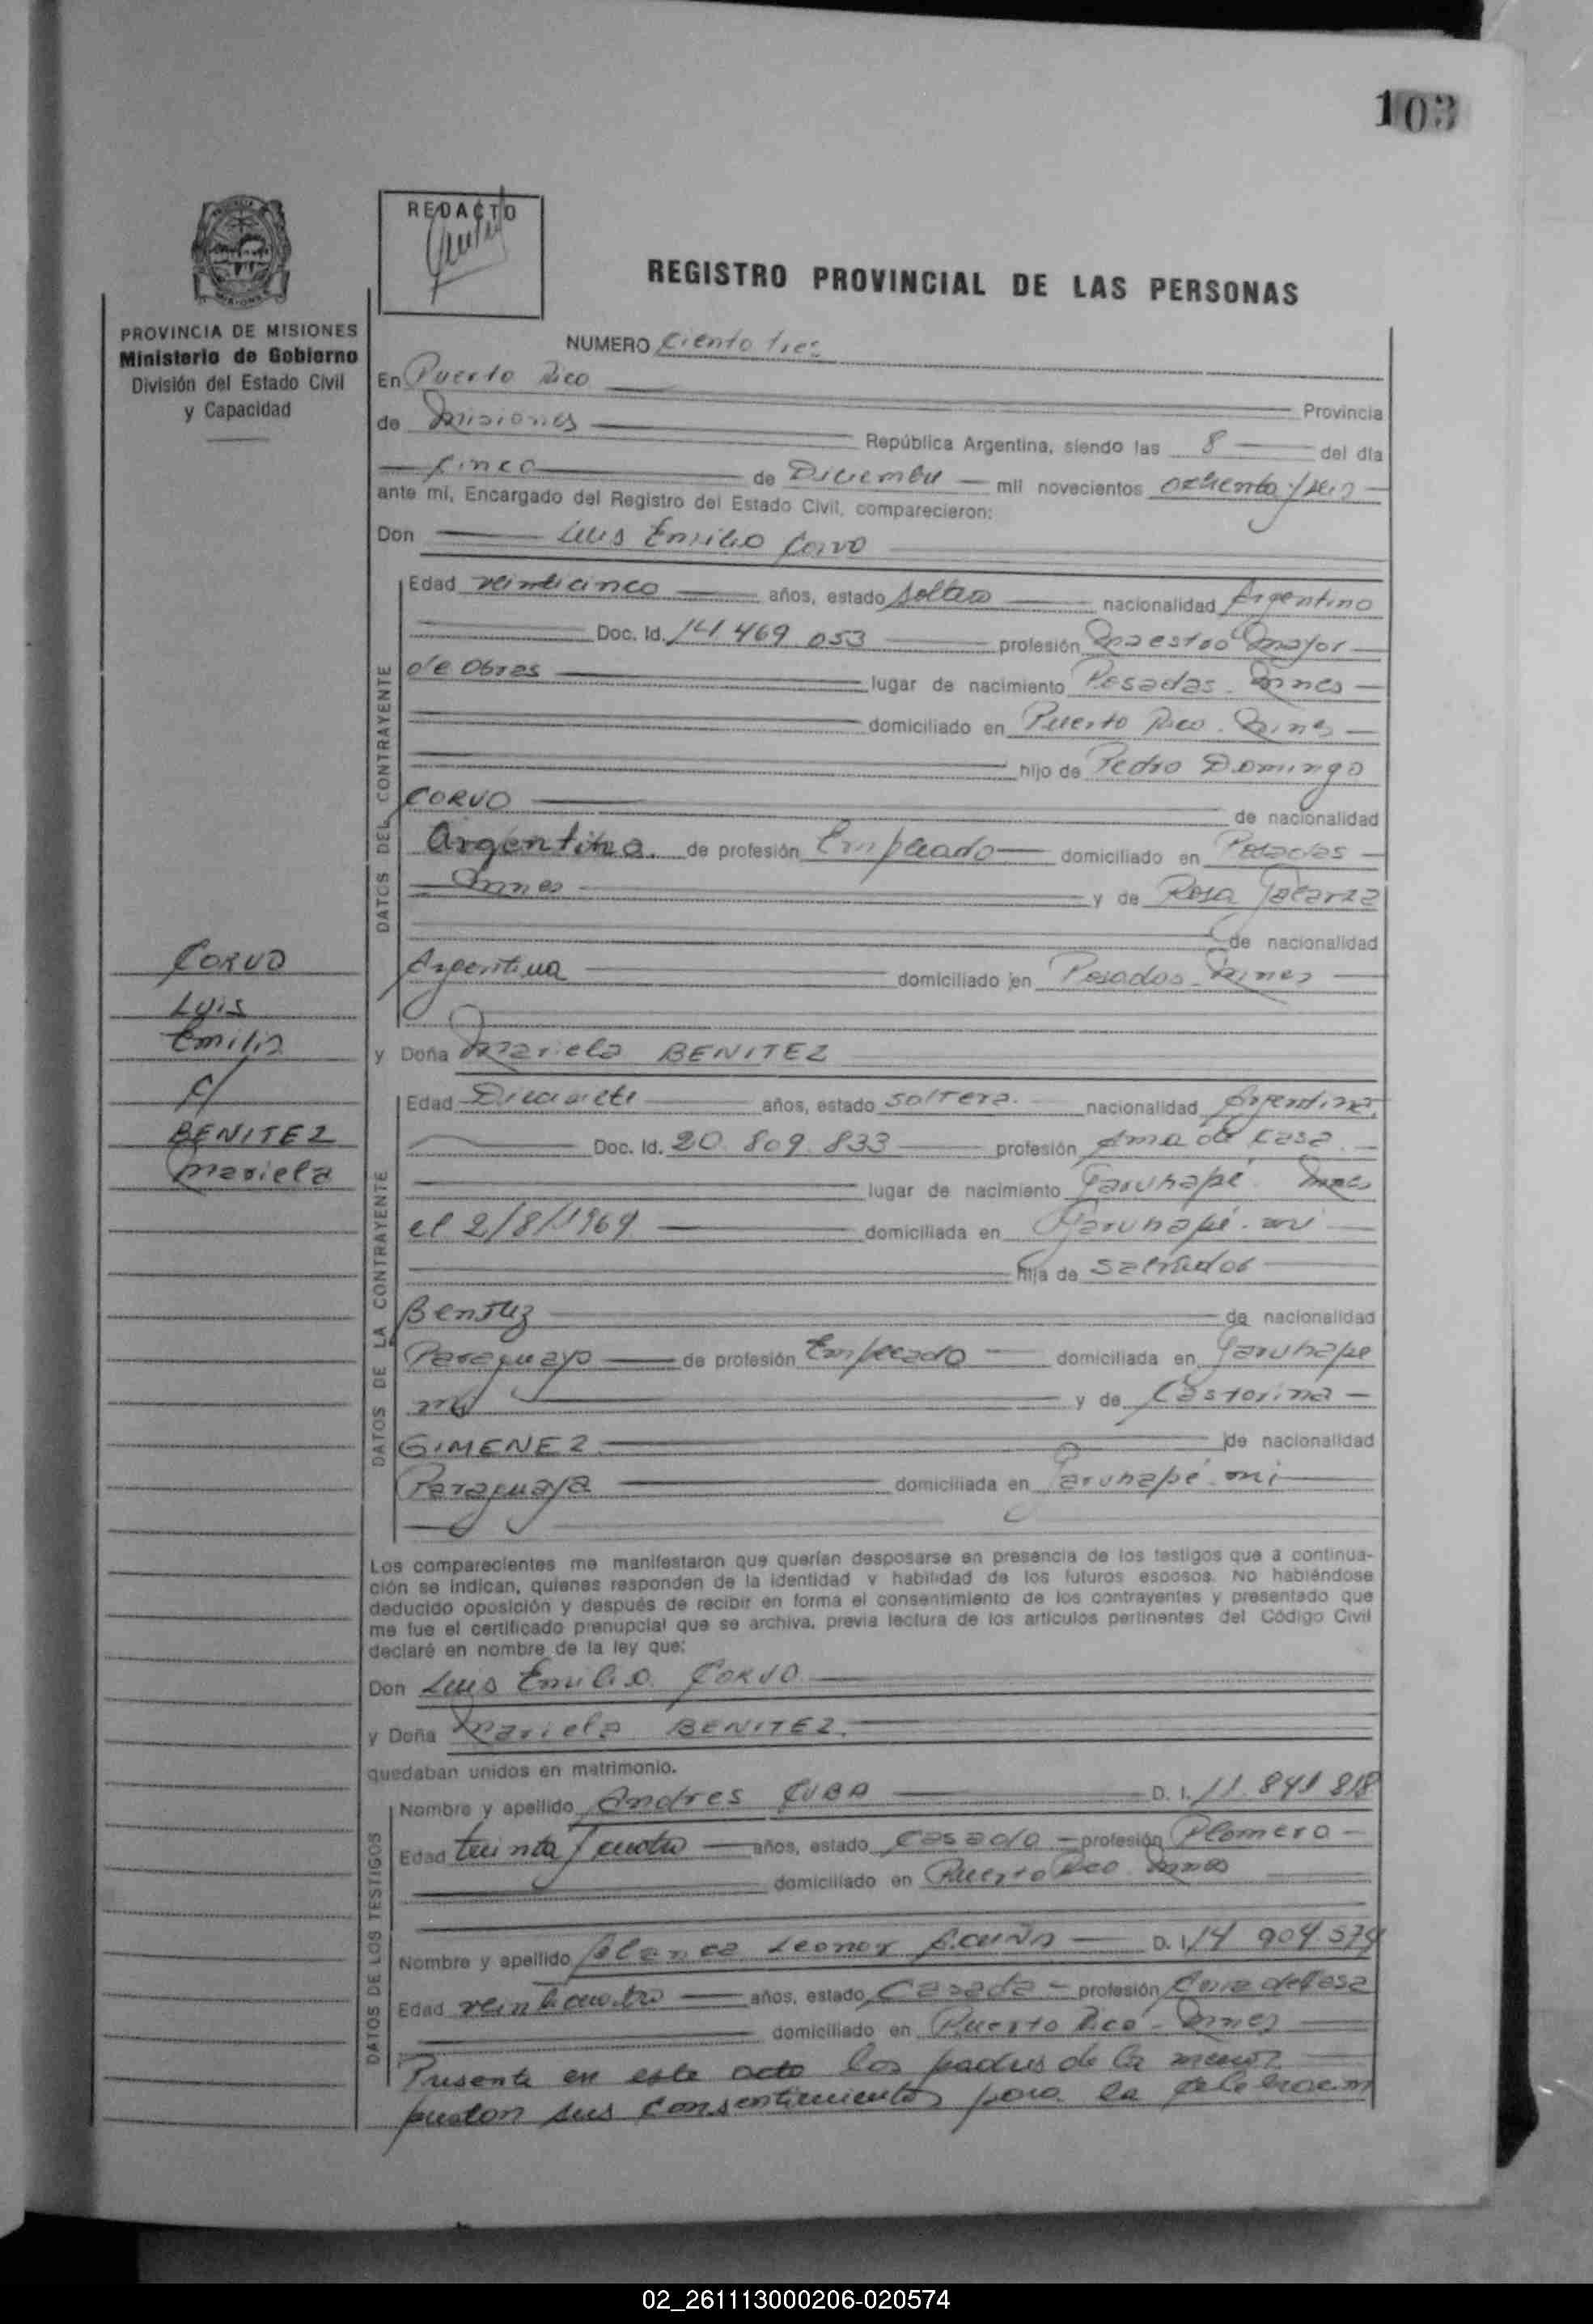 103
REDACTO
REGISTRO PROVINCIAL DE LAS PERSONAS
PROVINCIA DE MISIONES
Ministerio de Gobierno
División del Estado Civil
y Capacidad
NUMERO Ciento tres
En Puerto Rico
Provincia
de Misiones República Argentina, siendo las 8 del día
Cinco de Diciembre mil novecientos ochenta y seis
ante mí, Encargado del Registro del Estado Civil, comparecieron:
Don Luis Emilio Corvo
DATOS DEL CONTRAYENTE
Edad veinticinco años, estado soltero nacionalidad Argentino
Doc. Id. 14 469 053 profesión Maestro Mayor
de Obras lugar de nacimiento Posadas. Mnes
domiciliado en Puerto Rico. Mnes
hijo de Pedro Domingo
CORVO de nacionalidad
Argentino. de profesión Empleado domiciliado en Posadas
Mnes y de Rosa
de nacionalidad
Argentina domiciliado en Posadas. Mnes
CORVO
LUIS
Emilio
c/
BENITEZ
Mariela
y Doña Mariela BENITEZ
DATOS DE LA CONTRAYENTE
Edad Diecisiete años, estado soltera. nacionalidad Argentina
Doc. Id. 20. 809. 833 profesión Ama de Casa.
lugar de nacimiento Garuhapé. Mnes
el 2/8/1969 domiciliada en Garuhapé. Mi
hija de Salvador
Benitez de nacionalidad
Paraguayo de profesión Empleado domiciliada en Garuhape
Mi y de Castorina
GIMENEZ de nacionalidad
Paraguaya domiciliada en Garuhapé. Mi
Los comparecientes me manifestaron que querían desposarse en presencia de los testigos que a continua-
ción se indican, quienes responden de la identidad y habilidad de los futuros esposos. No habiéndose
deducido oposición y después de recibir en forma el consentimiento de los contrayentes y presentado que
me fue el certificado prenupcial que se archiva, previa lectura de los artículos pertinentes del Código Civil
declaré en nombre de la ley que:
Don Luis Emilio. CORVO
y Doña Mariela BENITEZ.
quedaban unidos en matrimonio.
DATOS DE LOS TESTIGOS
Nombre y apellido Andres CUBA D. I. 11. 841 818
Edad treinta y cuatro años, estado Casado profesión Plomero
domiciliado en Puerto Rico Mnes
Nombre y apellido Blanca Leonor ACUÑA D. I. 14 904 574
Edad veinticuatro años, estado Casada profesión Ama de Casa
domiciliado en Puerto Rico - Mnes
Presente en este acto los padres de la menor
prestan sus consentimientos para la celebración
02_261113000206-020574